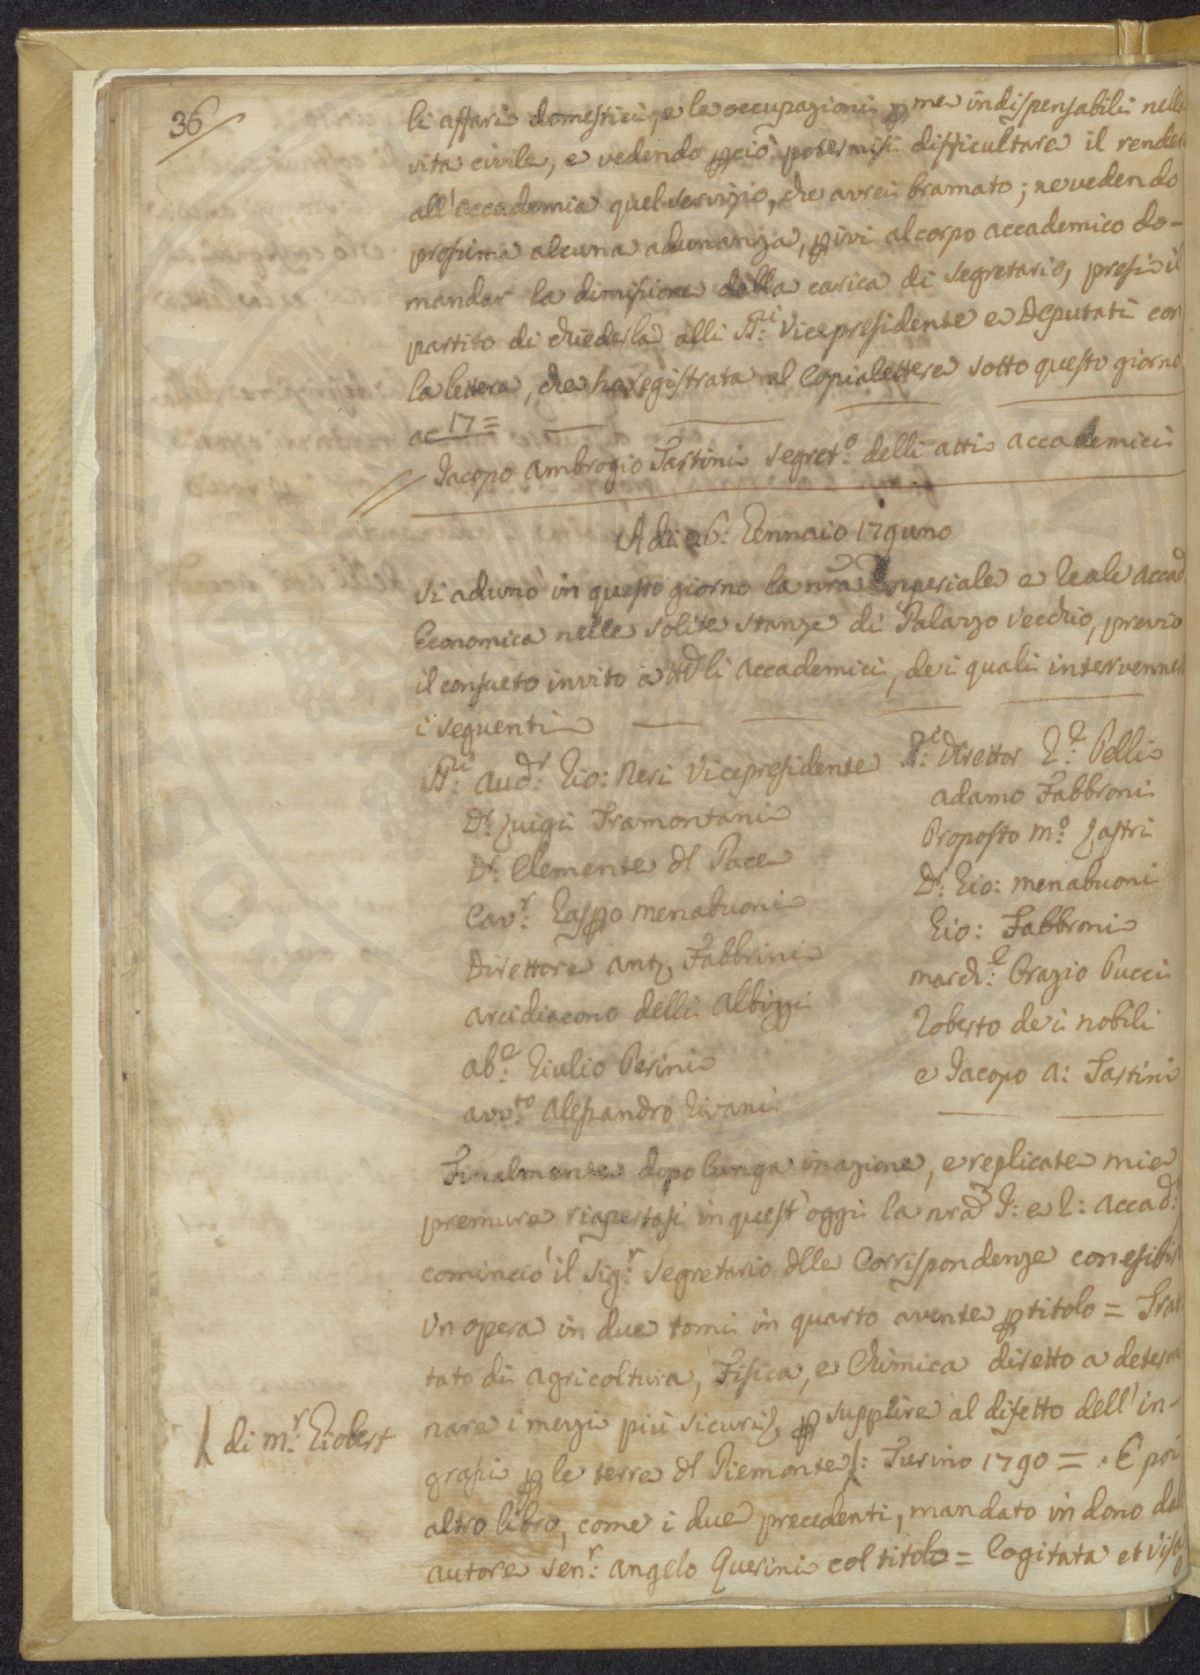 36
li affari domestici, e le occupazioni p me indispensabili nella
vita civile, e vedendo pciò potermisi difficultare il render
all'accademia quel servizio, che avrei bramato; ne vedendo
prossima alcuna adunanza, p ivi al corpo accademico do-
mandar la dimissione dalla carica di segretario, presi il
partito di chiederla alli SS.ri Vicepresidente e Deputati con
la lettera, che ho registrata al Copialettere sotto questo giorno
ac 17 =
Jacopo Ambrogio Tartini segret.o delli atti accademici
A di 26: Gennaio 179uno
Si adunò in questo giorno la nra Imperiale e Reale Accad
Economica nelle solite stanze di Palazzo vecchio, previo
il consueto invito a ttti li accademici, dei quali intervenner
i seguenti
SS.ri Aud.r Gio: Neri Vicepresidente
D.r Luigi Tramontani
D.r Clemente dl Pace
Cav.r Gasppo Menabuoni
Direttore Ant.o Fabbrini
Arcidiacono delli Albizzi
Ab.e Giulio Perini
Avv.to Alessandro Rivani
S.ri Direttor G.e Pelli
Adamo Fabbroni
Proposto M.o Lastri
D.r Gio: Menabuoni
Gio: Fabbroni
March.e Orazio Pucci
Roberto dei Nobili
e Jacopo A: Tartini
Finalmente dopo lunga inazione, e replicate mie
premure riapertasi in quest'oggi la nra I: e R: Accad:
cominciò il Sig.r Segretario dlle Corrispondenze con esibir
un opera in due tomi in quarto avente p titolo = Trat
tato di Agricoltura, Fisica, e Chimica diretto a determi
nare i mezzi più sicuri, p supplire al difetto dell'in-
grassi p le terre dl Piemonte /: Turino 1790 =. E poi
/ di M.r Giobert
altro libro, come i due precedenti, mandato in dono dal
autore Sen.r Angelo Querini col titolo = Cogitata et visa